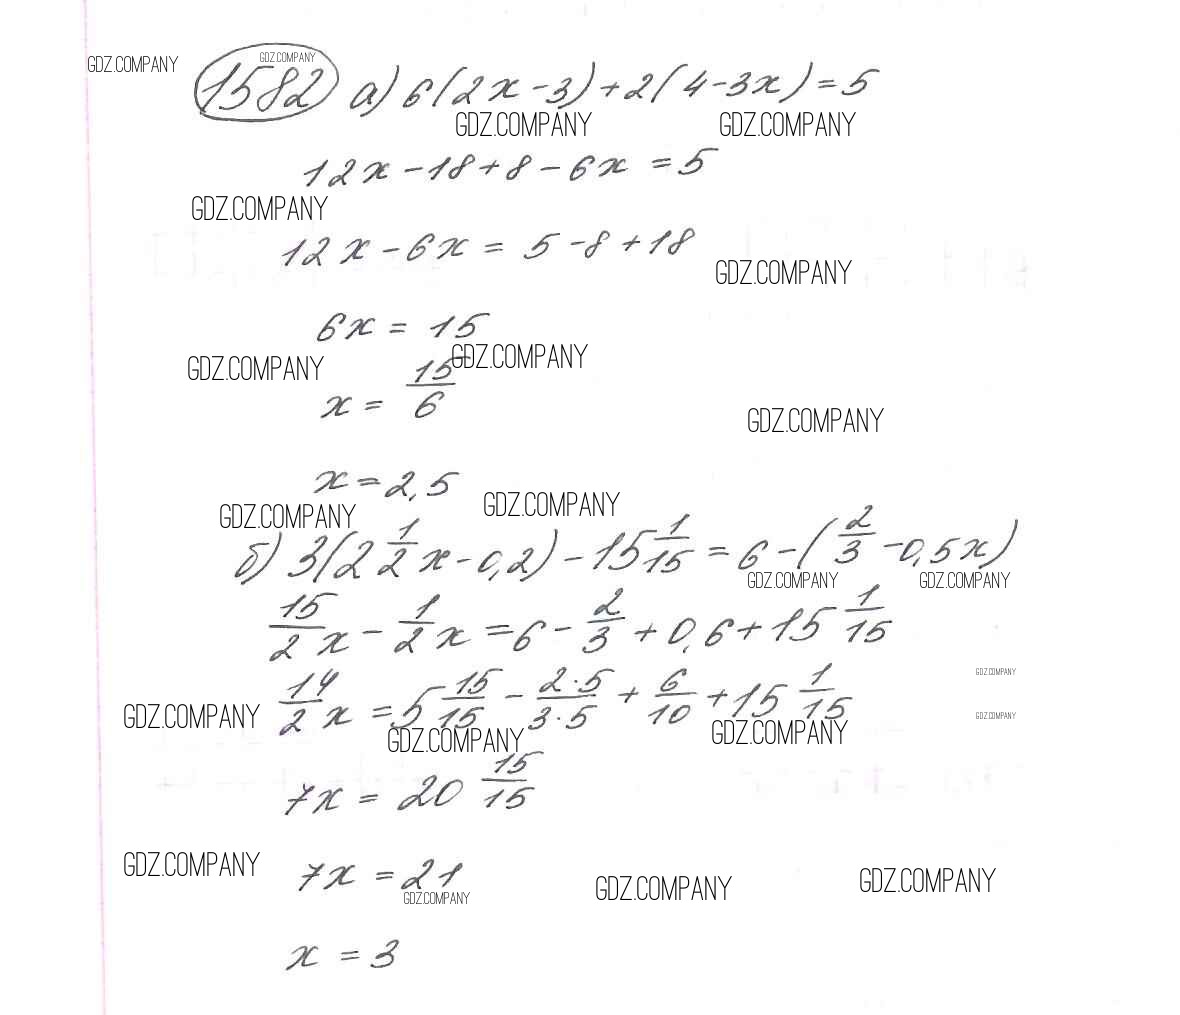 GDZ.COMPANY
GDZ.COMPANY
1582 а) 6(2x-3)+2(4-3x)=5
GDZ.COMPANY GDZ.COMPANY
12x-18+8-6x=5
GDZ.COMPANY
12x-6x=5-8+18
GDZ.COMPANY
6x=15
GDZ.COMPANY GDZ.COMPANY
x=15/6
GDZ.COMPANY
x=2,5
GDZ.COMPANY GDZ.COMPANY
б) 3(2 1/2 x-0,2)-15 1/15=6-(2/3-0,5x)
GDZ.COMPANY GDZ.COMPANY
15/2 x-1/2 x=6-2/3+0,6+15 1/15
GDZ.COMPANY
14/2 x=5 15/15-2·5/3·5+6/10+15 1/15
GDZ.COMPANY GDZ.COMPANY
GDZ.COMPANY GDZ.COMPANY
7x=20 15/15
GDZ.COMPANY
7x=21
GDZ.COMPANY GDZ.COMPANY GDZ.COMPANY
x=3